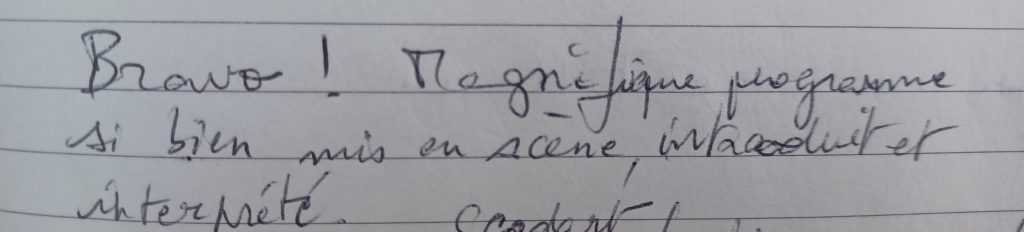 Bravo ! Magnifique programme
si bien mis en scène, introduit et
interprété.